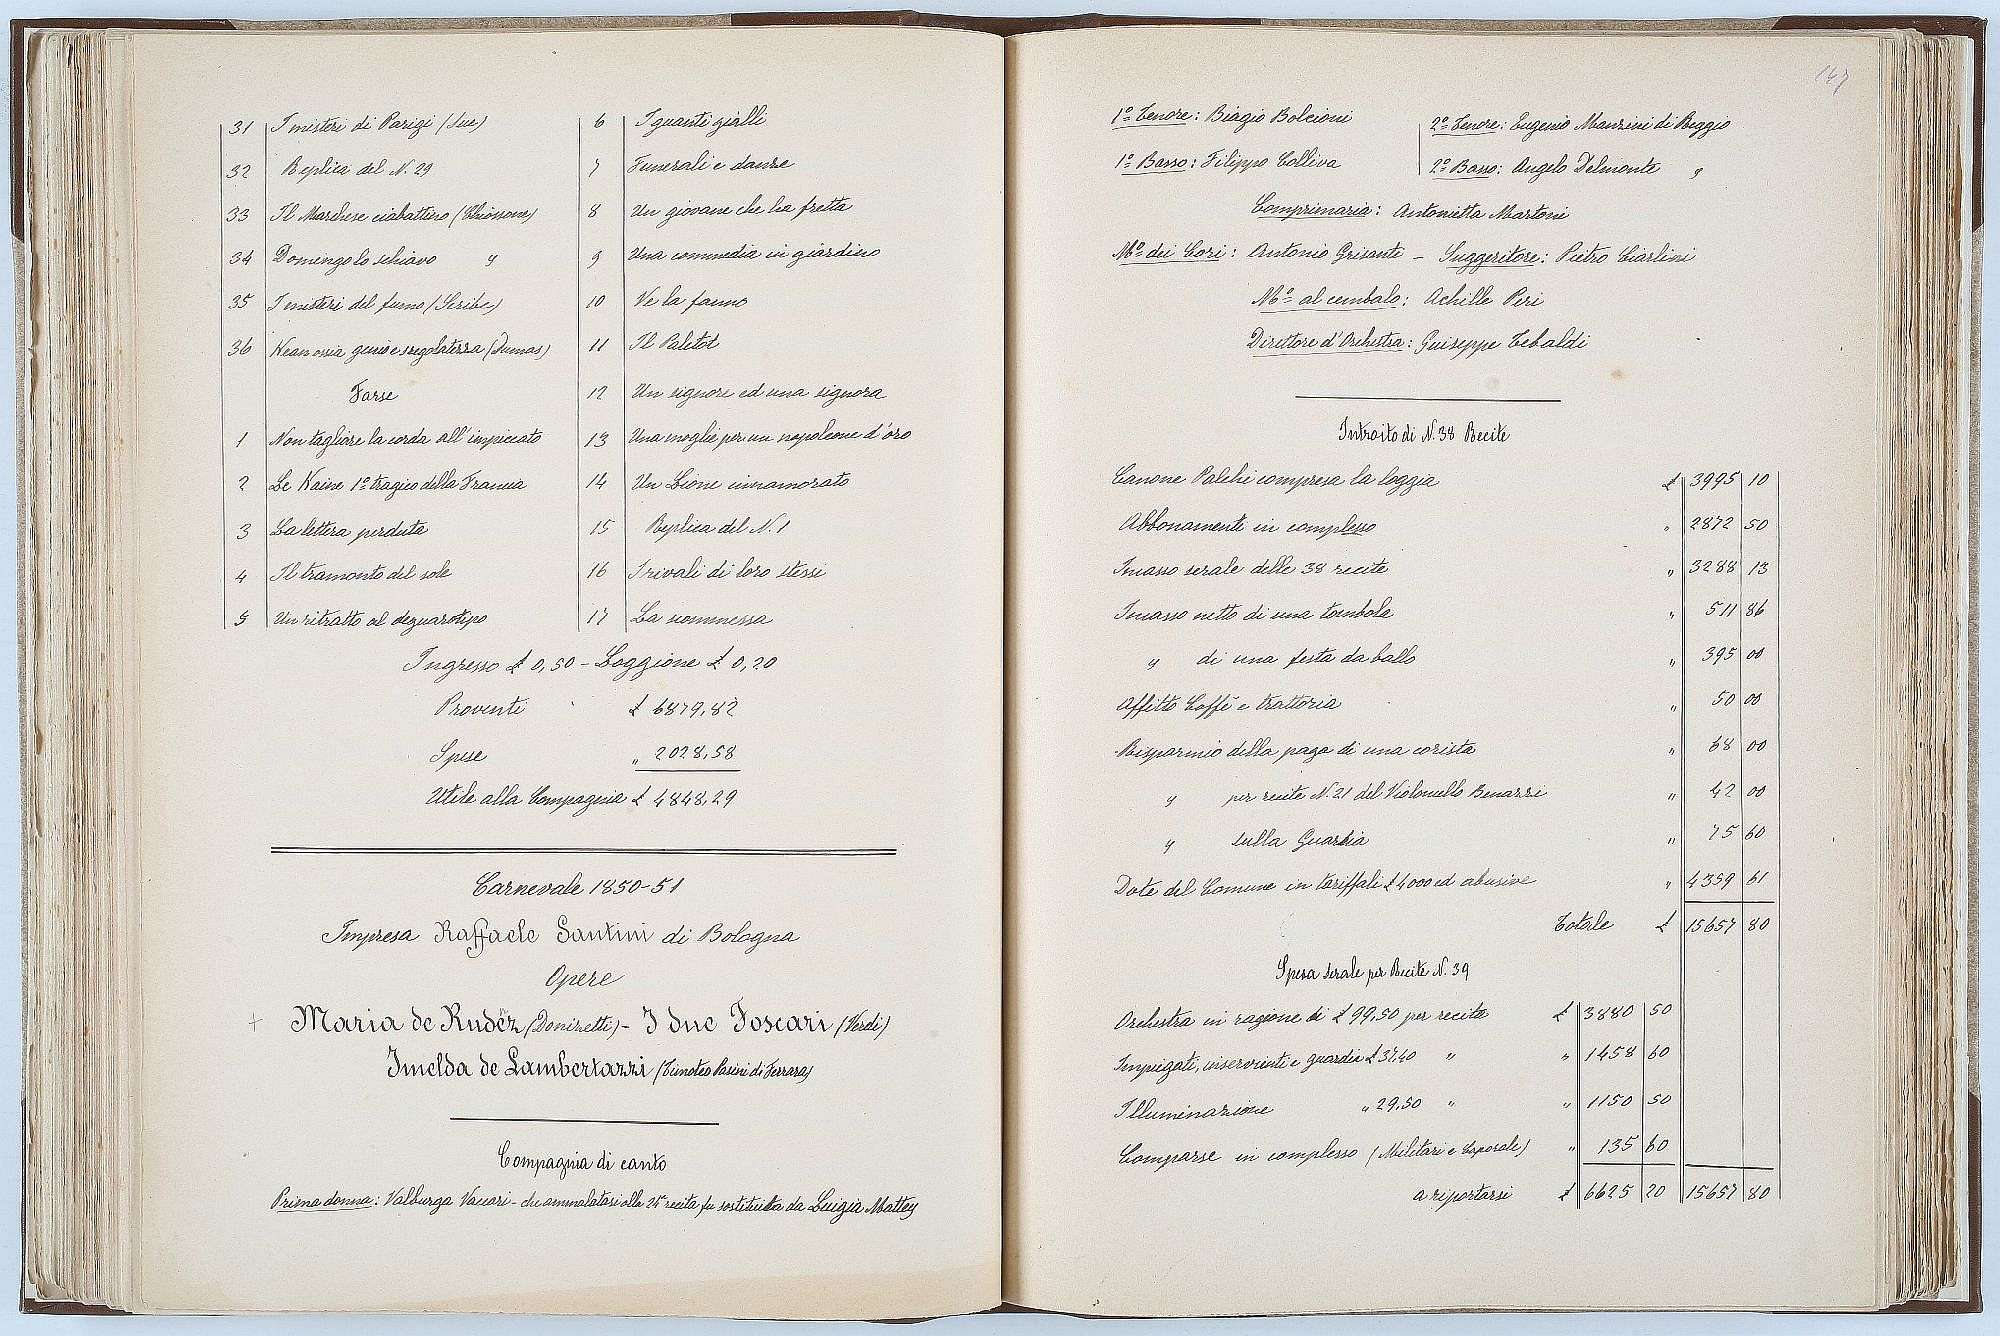 31 I misteri di Parigi (Sue)
32 Replica del N. 29
33 Il Marchese ciabattino (Chiossone)
34 Domingo lo schiavo "
35 I misteri del fumo (Scribe)
36 Kean ossia genio e sregolatezza (Dumas)
Farse
1 Non tagliare la corda all'impiccato
2 Le Kaine 1º tragico della Francia
3 La lettera perduta
4 Il tramonto del sole
5 Un ritratto al deguarotipo
6 I guanti gialli
7 Funerali e danze
8 Un giovane che ha fretta
9 Una commedia in giardino
10 Ve la fanno
11 Il Paletot
12 Un signore ed una signora
13 Una moglie per un napoleone d'oro
14 Un Lione innamorato
15 Replica del N. 1
16 I rivali di loro stessi
17 La scommessa
Ingresso £ 0,50 - Loggione £ 0,20
Proventi £ 6879,82
Spese " 2028,58
Utile alla Compagnia £ 4848,29
Carnevale 1850-51
Impresa Raffaele Santini di Bologna
Opere
+ Maria de Rudèz (Donizetti) - I due Foscari (Verdi)
Imelda de Lambertazzi (Timoteo Pasini di Ferrara)
Compagnia di canto
Prima donna: Valburga Vaccari - che ammalatasi alla 24ª recita fu sostituita da Luigia Mattey
147
1º Tenore: Biagio Bolcioni
2º Tenore: Eugenio Manzini di Reggio
1º Basso: Filippo Colliva
2º Basso: Angelo Delmonte "
Comprimaria: Antonietta Martoni
Mº dei Cori: Antonio Grisante - Suggeritore: Pietro Ciarlini
Mº al cembalo: Achille Peri
Direttore d'Orchestra: Guiseppe Tebaldi
Introito di N. 38 Recite
Canone Palchi compresa la loggia £ 3995 10
Abbonamenti in complesso " 2872 50
Incasso serale delle 38 recite " 3288 13
Incasso netto di una tombola " 511 86
" di una festa da ballo " 395 00
Affitto Caffè e trattoria " 50 00
Risparmio della paga di una corista " 68 00
" per recite N. 21 del Violoncello Benazzi " 42 00
" sulla Guardia " 75 60
Dote del Comune in tariffali £ 4000 ed abusive " 4359 61
Totale £ 15657 80
Spesa serale per Recite N. 39
Orchestra in ragione di £ 99,50 per recita £ 3880 50
Impiegati, inservienti e guardia £ 37.40 " " 1458 60
Illuminazione " 29,50 " " 1150 50
Comparse in complesso (Militari e Caporale) " 135 60
a riportarsi £ 6625 20 15657 80